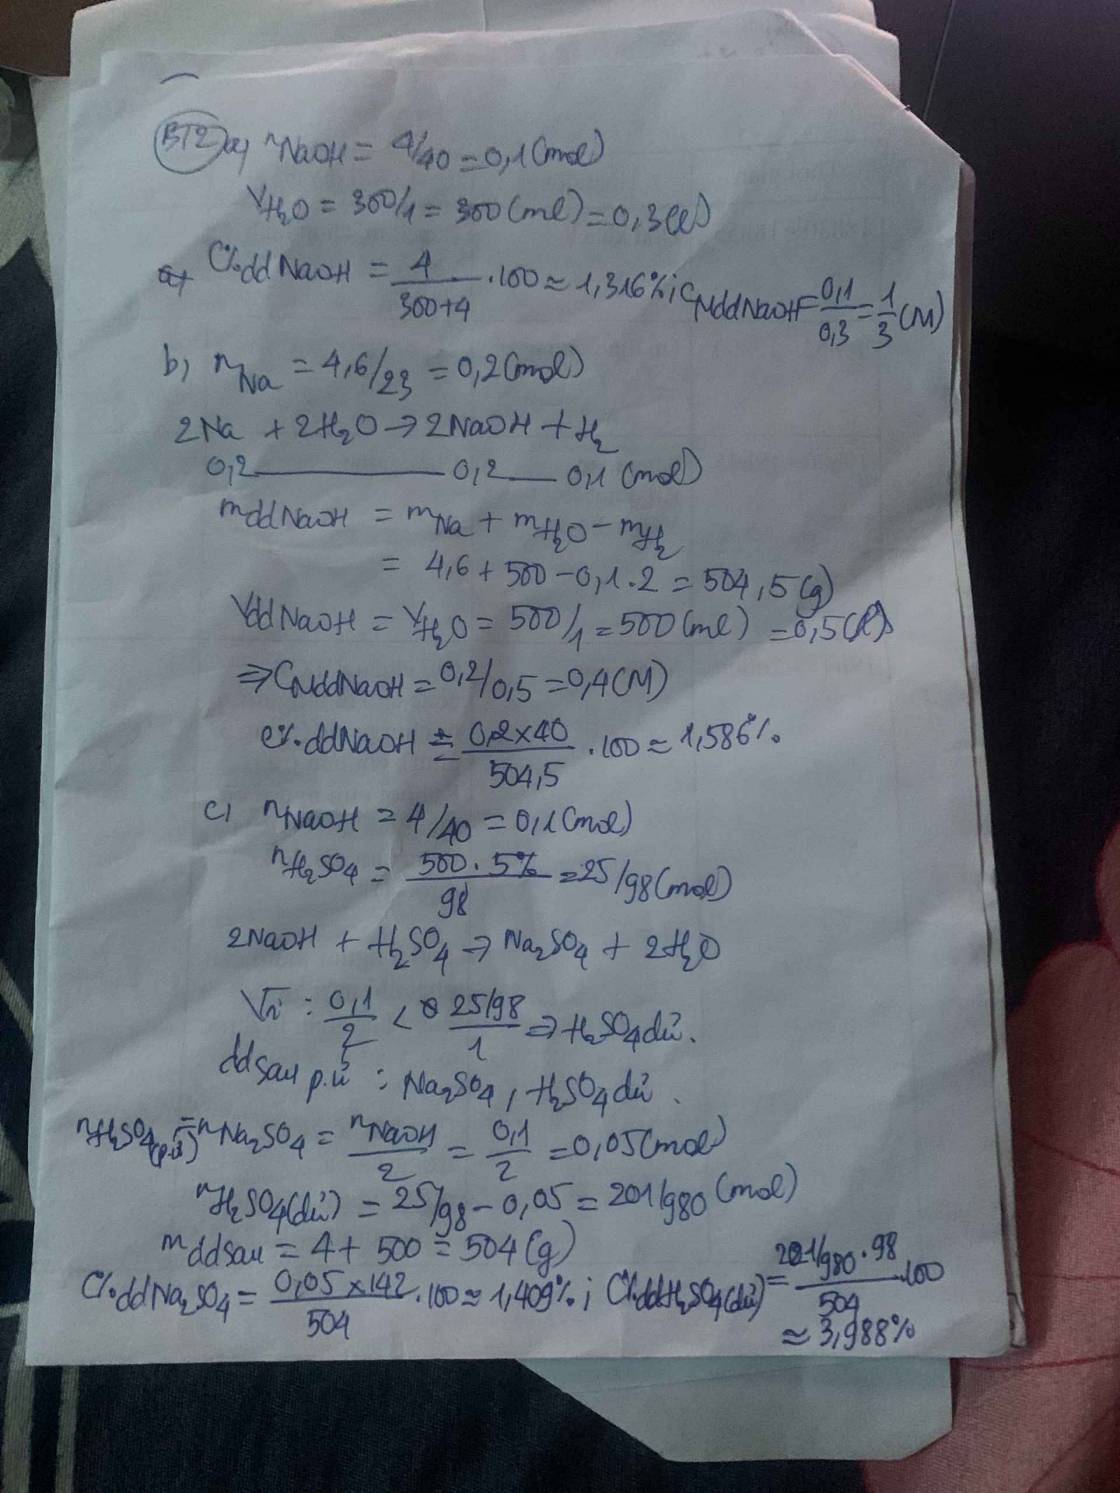 BT2 a, nNaOH = 4/40 = 0,1 (mol)
VH₂O = 300/1 = 300 (ml) = 0,3 (l)
C%ddNaOH = 4/(300+4) . 100 ≈ 1,316%; CMddNaOH = 0,1/0,3 = 1/3 (M)
b, nNa = 4,6/23 = 0,2 (mol)
2Na + 2H₂O → 2NaOH + H₂
0,2 — 0,2 — 0,1 (mol)
mddNaOH = mNa + mH₂O - mH₂
= 4,6 + 500 - 0,1.2 = 504,5 (g)
VddNaOH = VH₂O = 500/1 = 500 (ml) = 0,5 (l)
⇒ CMddNaOH = 0,2/0,5 = 0,4 (M)
C%ddNaOH = (0,2×40)/504,5 . 100 ≈ 1,586%
c, nNaOH = 4/40 = 0,1 (mol)
nH₂SO₄ = (500.5%)/98 = 25/98 (mol)
2NaOH + H₂SO₄ → Na₂SO₄ + 2H₂O
Vì: 0,1/2 < (25/98)/1 ⇒ H₂SO₄ dư.
dd sau p.ứ: Na₂SO₄, H₂SO₄ dư.
nH₂SO₄(p.ứ) = nNa₂SO₄ = nNaOH/2 = 0,1/2 = 0,05 (mol)
nH₂SO₄(dư) = 25/98 - 0,05 = 201/980 (mol)
mdd sau = 4 + 500 = 504 (g)
C%ddNa₂SO₄ = (0,05×142)/504 . 100 ≈ 1,409%; C%ddH₂SO₄(dư) = (201/980 . 98)/504 . 100
≈ 3,988%